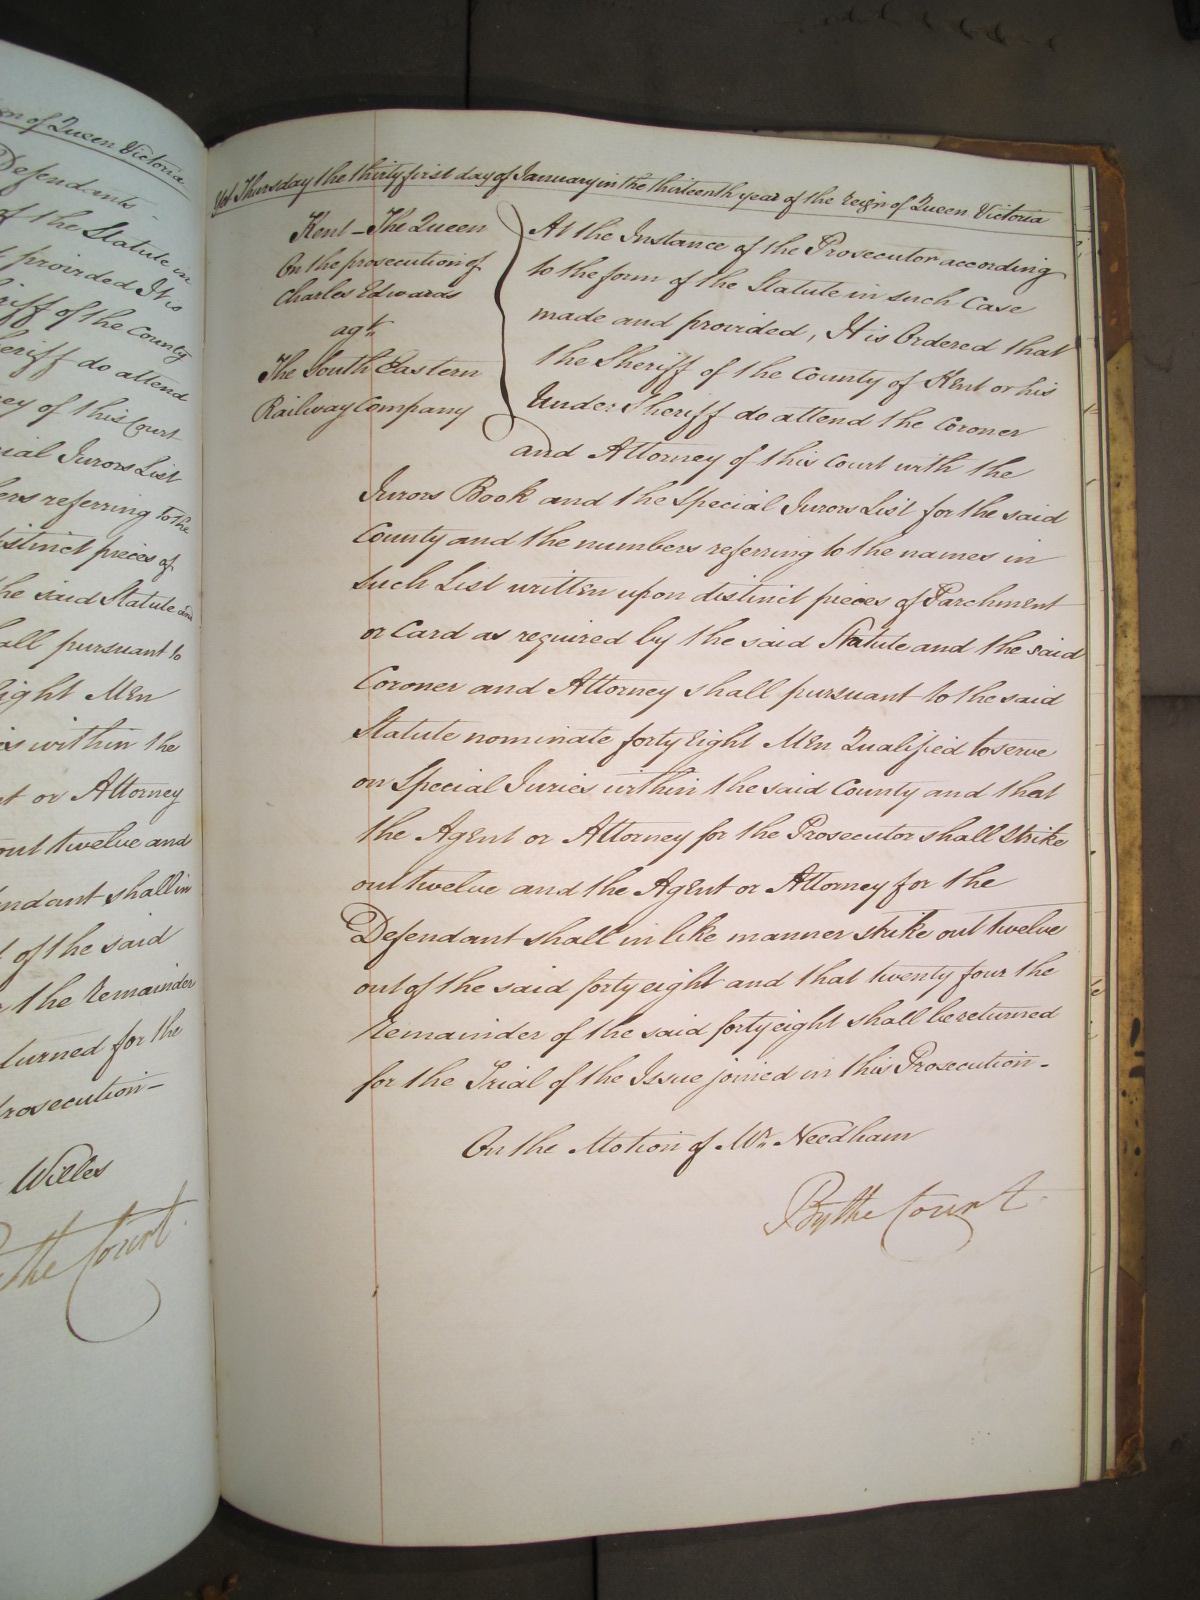 gn of Queen Victoria
Defendants
of the Statute in
provided It is
riff of the County
heriff do attend
ney of this Court
cial Jurors List
bers referring to the
istinct pieces of
the said Statute and
all pursuant to
Eight Men
ies within the
nt or Attorney
out twelve and
endant shall in
t of the said
the Remainder
turned for the
Prosecution—
Willes
the Court
Yet Thursday the thirty first day of January in the thirteenth year of the reign of Queen Victoria
Kent – The Queen
On the prosecution of
Charles Edwards
agt
The South Eastern
Railway Company
At the Instance of the Prosecutor according
to the form of the Statute in such Case
made and provided, It is Ordered that
the Sheriff of the County of Kent or his
Under Sheriff do attend the Coroner
and Attorney of this Court with the
Jurors Book and the Special Jurors List for the said
County and the numbers referring to the names in
such List written upon distinct pieces of Parchment
or Card as required by the said Statute and the said
Coroner and Attorney shall pursuant to the said
Statute nominate forty Eight Men Qualified to serve
on Special Juries within the said County and that
the Agent or Attorney for the Prosecutor shall Strike
out twelve and the Agent or Attorney for the
Defendant shall in like manner strike out twelve
out of the said forty eight and that twenty four the
Remainder of the said forty eight shall be returned
for the Trial of the Issue joined in this Prosecution.
On the Motion of Mr. Needham
By the Court